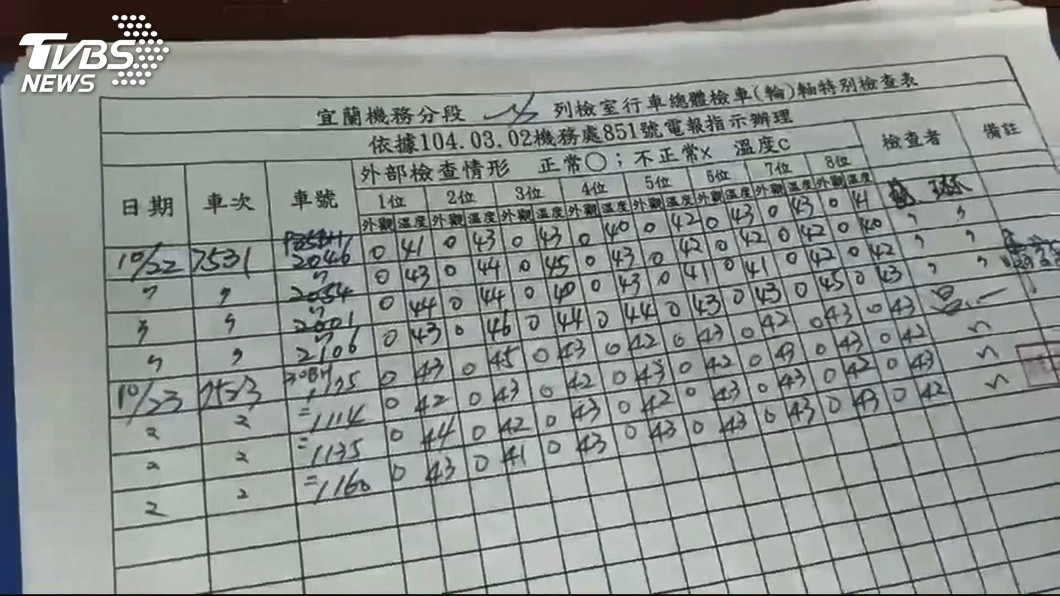 TVBS
NEWS
宜蘭機務分段 列檢室行車總體檢車(輪)軸特別檢查表
依據104.03.02機務處851號電報指示辦理
日期 車次 車號 外部檢查情形 正常○;不正常x 溫度c 檢查者 備註
1位 2位 3位 4位 5位 6位 7位 8位
外觀 溫度 外觀 溫度 外觀 溫度 外觀 溫度 外觀 溫度 外觀 溫度 外觀 溫度 外觀 溫度
10/22 7531 2046 0 41 0 43 0 43 0 40 0 42 0 43 0 43 0 41
〃 〃 〃 2054 0 43 0 44 0 45 0 43 0 42 0 42 0 42 0 40 〃 〃
〃 〃 〃 2001 0 44 0 44 0 40 0 43 0 41 0 41 0 42 0 42 〃 〃
〃 〃 〃 2106 0 43 0 46 0 44 0 44 0 43 0 43 0 45 0 43 〃 〃
10/23 7523 30BH 1175 0 43 0 45 0 43 0 42 0 43 0 42 0 43 0 43
〃 〃 〃 1114 0 42 0 43 0 42 0 43 0 42 0 43 0 43 0 42 〃
〃 〃 〃 1135 0 44 0 42 0 43 0 42 0 43 0 43 0 42 0 43 〃
〃 〃 〃 1160 0 43 0 41 0 43 0 43 0 43 0 43 0 43 0 42 〃